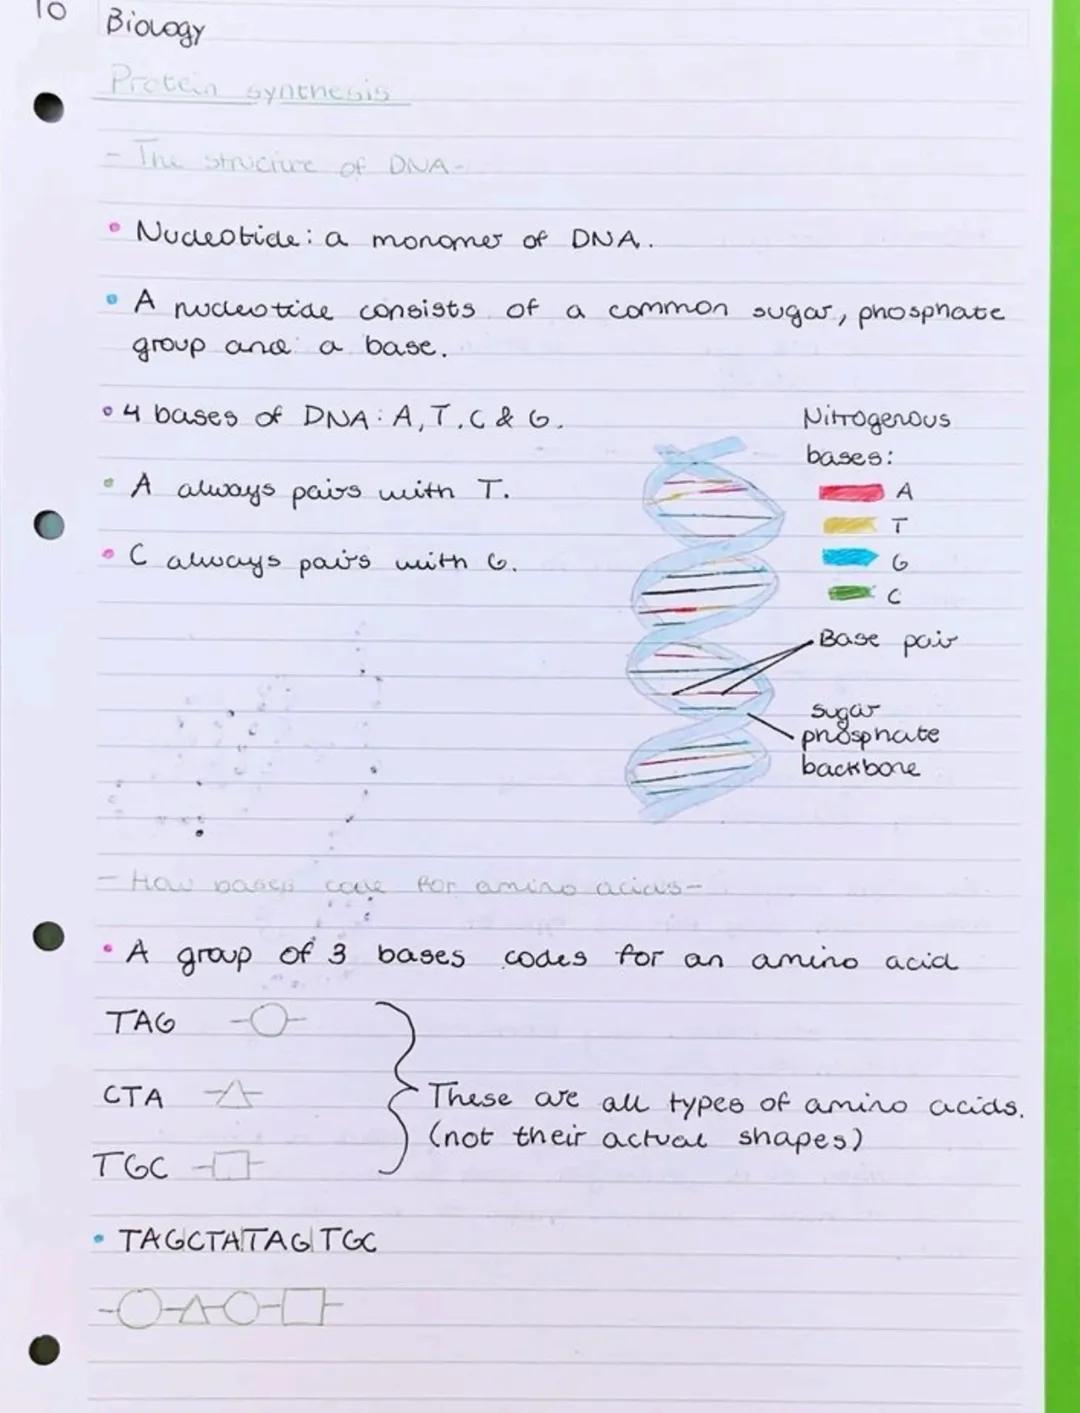 10
Biology
Protein synthesis
- The structure of DNA-
• Nucleotide: a monomer of DNA.
• A nucleotide consists of a common sugar, phosphate
group and a base.
• 4 bases of DNA: A, T, C & G.
• A always pairs with T.
• C always pairs with G.
Nitrogenous
bases:
A
T
G
C
Base pair
sugar
phosphate
backbone
- How bases code for amino acids-
• A group of 3 bases codes for an amino acid
TAG
CTA
TGC
These are all types of amino acids.
(not their actual shapes)
• TAG|CTA|TAG|TGC